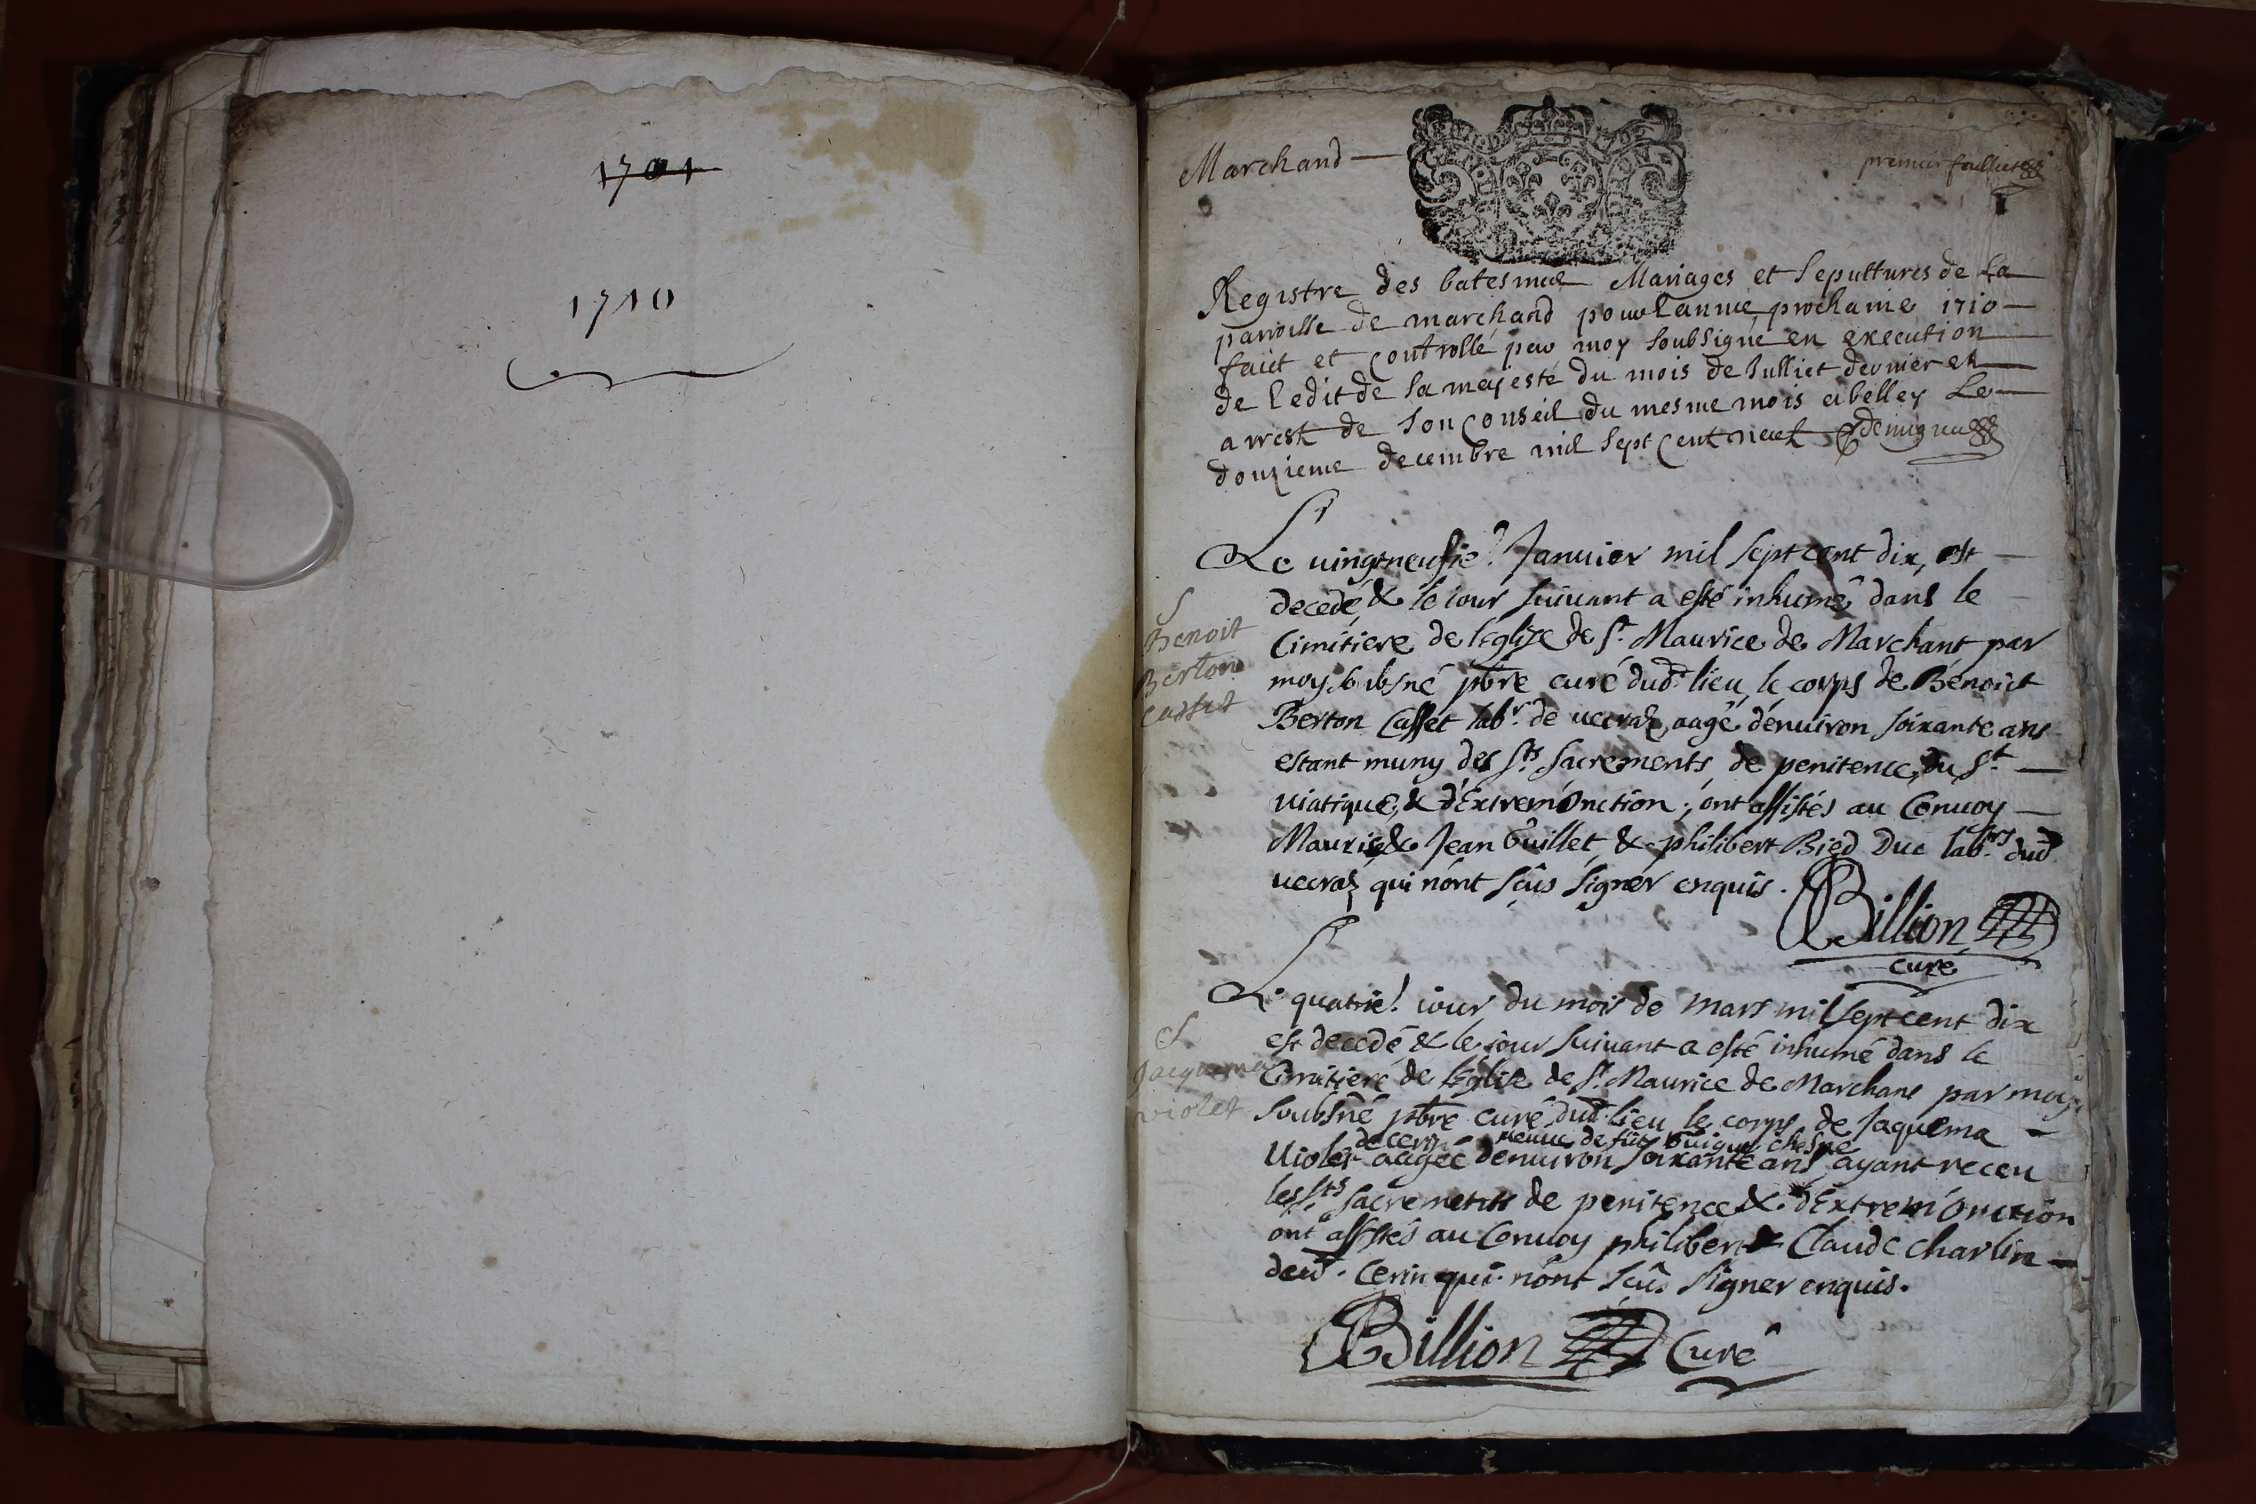 1701
1710
Marchand
premier foulliet
Registre des batesmes Mariages et sepultures de La
parroisse de marchand pour Lannee prochaine 1710
faict et controllé par moy soubsigné en execution
de Ledit de sa majesté du mois de Julliet dernier et
arrest de son conseil du mesme mois a belley Le
douzieme decembre mil sept cent neuf
S
Benoit
Berton
Casset
Le vingtneufie. Janvier mil sept cent dix, est
decedé & le jour suivant a esté inhumé dans le
Cimitiere de leglize de St. Maurice de Marchant par
moy sousné pbre curé dudt lieu, le corps de Benoict
Berton Casset labr. de uecraz, aagé denuiron soixante ans
estant muny des Sts. Sacrements, de penitence, du St.
uiatique, & d'Extrem'Onction; ont assistés au Conuoy
Mauris & Jean Guillet, & philibert Bied Duc labrs. dud
uecraz qui n'ont sçûs signer enquis.
Billion
curé
S.
Jacquema
violet
Le quatrie. iour du mois de mars mil sept cent dix
est decedé & le jour suivant a esté inhumé dans le
Cimitiere de leglize de St. Maurice de Marchans par moy
soubsné pbre curé dud. lieu le corps de Jaquema
de cerin ueuue de feu chesne
Uiolet aagée denuiron soixante ans ayant receu
les Sts sacrements de penitence & dExtrem'Onction
ont assistés au Conuoy philibert & Claude Charlin
dud. Cerin qui n'ont sçûs signer enquis.
Billion Curé